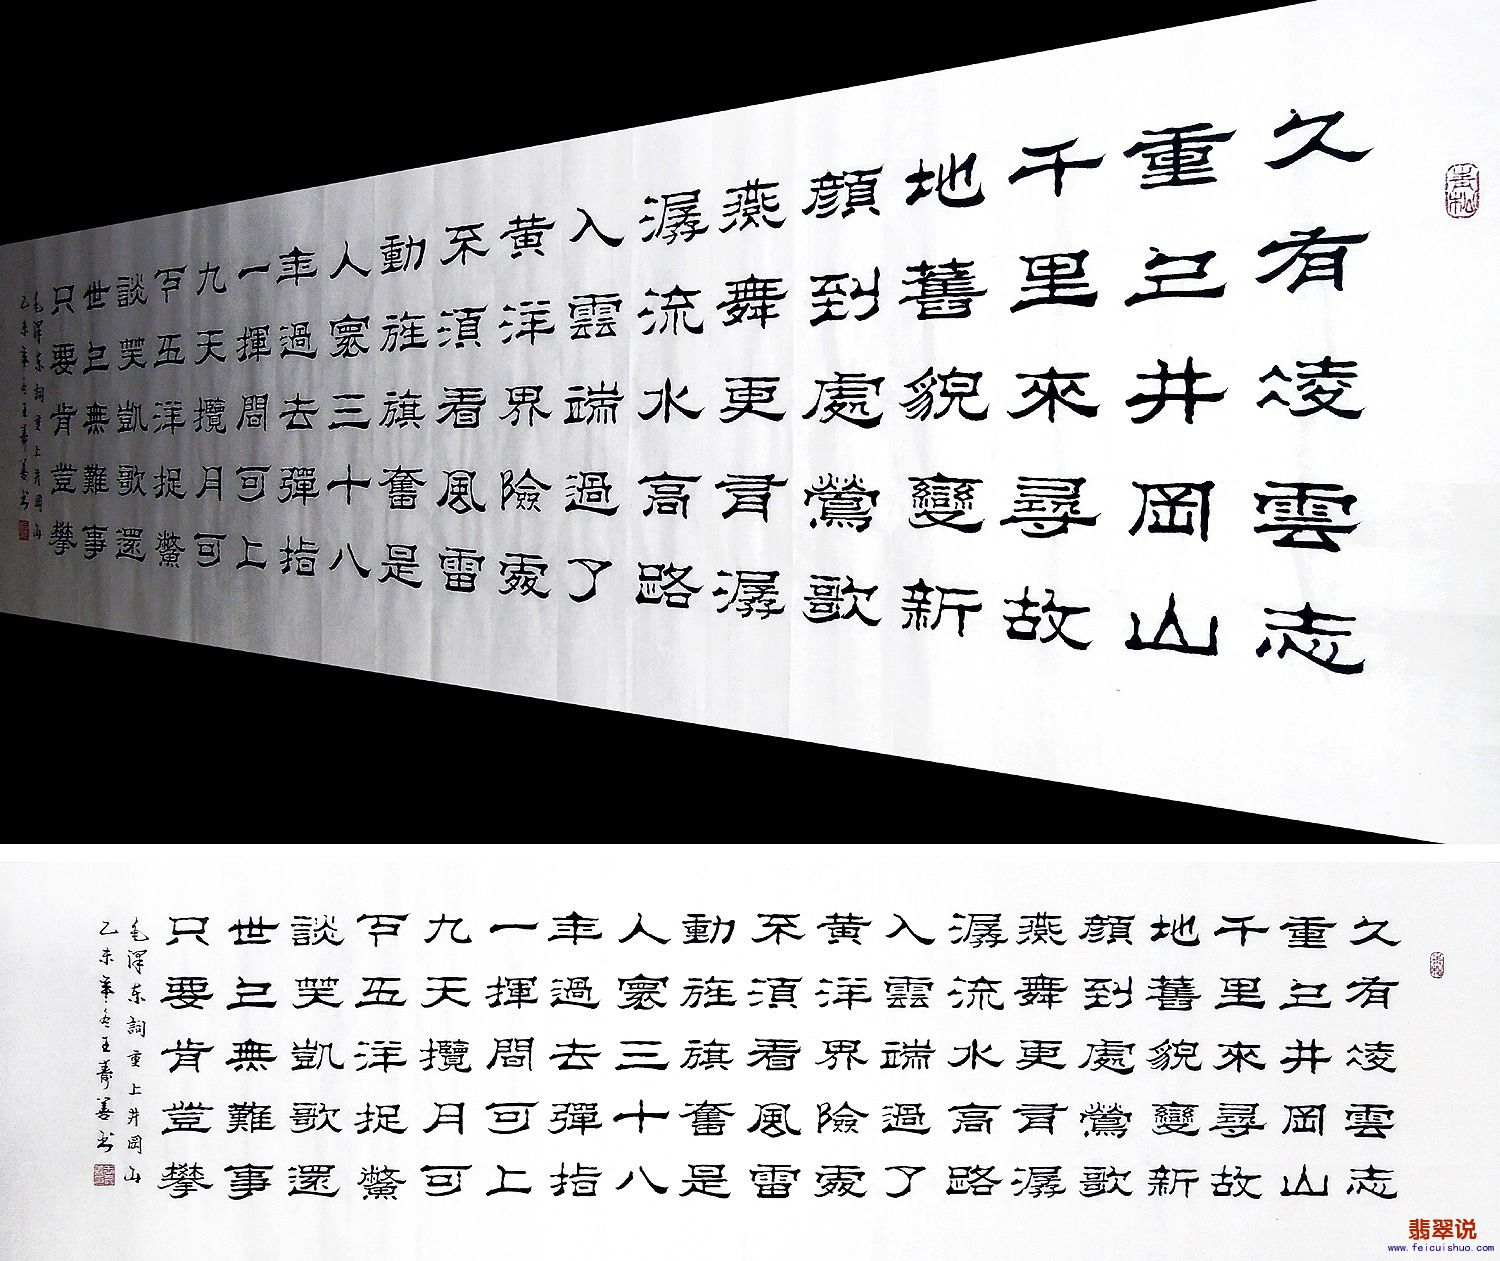 久有凌雲志
重上井岡山
千里來尋故
地舊貌變新
顔到處鶯歌
燕舞更有潺
潺流水高路
入雲端過了
黄洋界險處
不須看風雷
動旌旗奮是
人寰三十八
年過去彈指
一揮間可上
九天攬月可
下五洋捉鱉
談笑凱歌還
世上無難事
只要肯登攀
毛澤东詞重上井岡山
乙未年冬王壽善书
久有凌雲志
重上井岡山
千里來尋故
地舊貌變新
顔到處鶯歌
燕舞更有潺
潺流水高路
入雲端過了
黄洋界險處
不須看風雷
動旌旗奮是
人寰三十八
年過去彈指
一揮間可上
九天攬月可
下五洋捉鱉
談笑凱歌還
世上無難事
只要肯登攀
毛澤东詞重上井岡山
乙未年冬王壽善书
翡翠说
www.feicuishuo.com